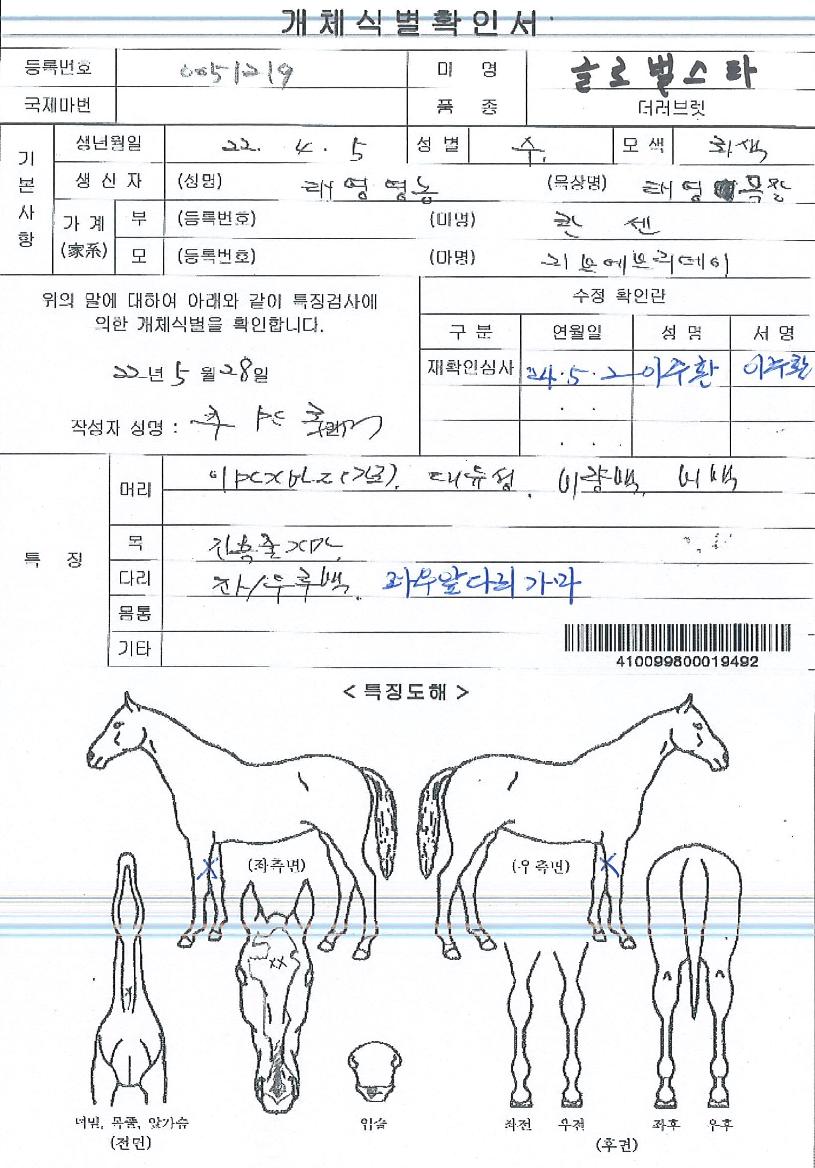 개체식별확인서
등록번호 0051219 마 명 글로벌스타
국제마번 품 종 더러브렛
기본사항
생년월일 22. 4. 5 성별 수 모색 회색
생 산 자 (성명) 태영영농 (목장명) 태영 목장
가계(家系) 부 (등록번호) (마명) 칸 센
모 (등록번호) (마명) 리브에브리데이
위의 말에 대하여 아래와 같이 특징검사에
의한 개체식별을 확인합니다.
22년 5 월 28일
작성자 성명 :
수정 확인란
구 분 연월일 성 명 서 명
재확인심사 24. 5. 2 이주환 이주환
특 징
머리
목
다리 좌우앞다리 가마
몸통
기타
410099800019492
< 특징도해 >
(좌측면) (우측면)
턱밑, 목폴, 앞가슴
(전면)
입술
좌전 우전 좌후 우후
(후면)